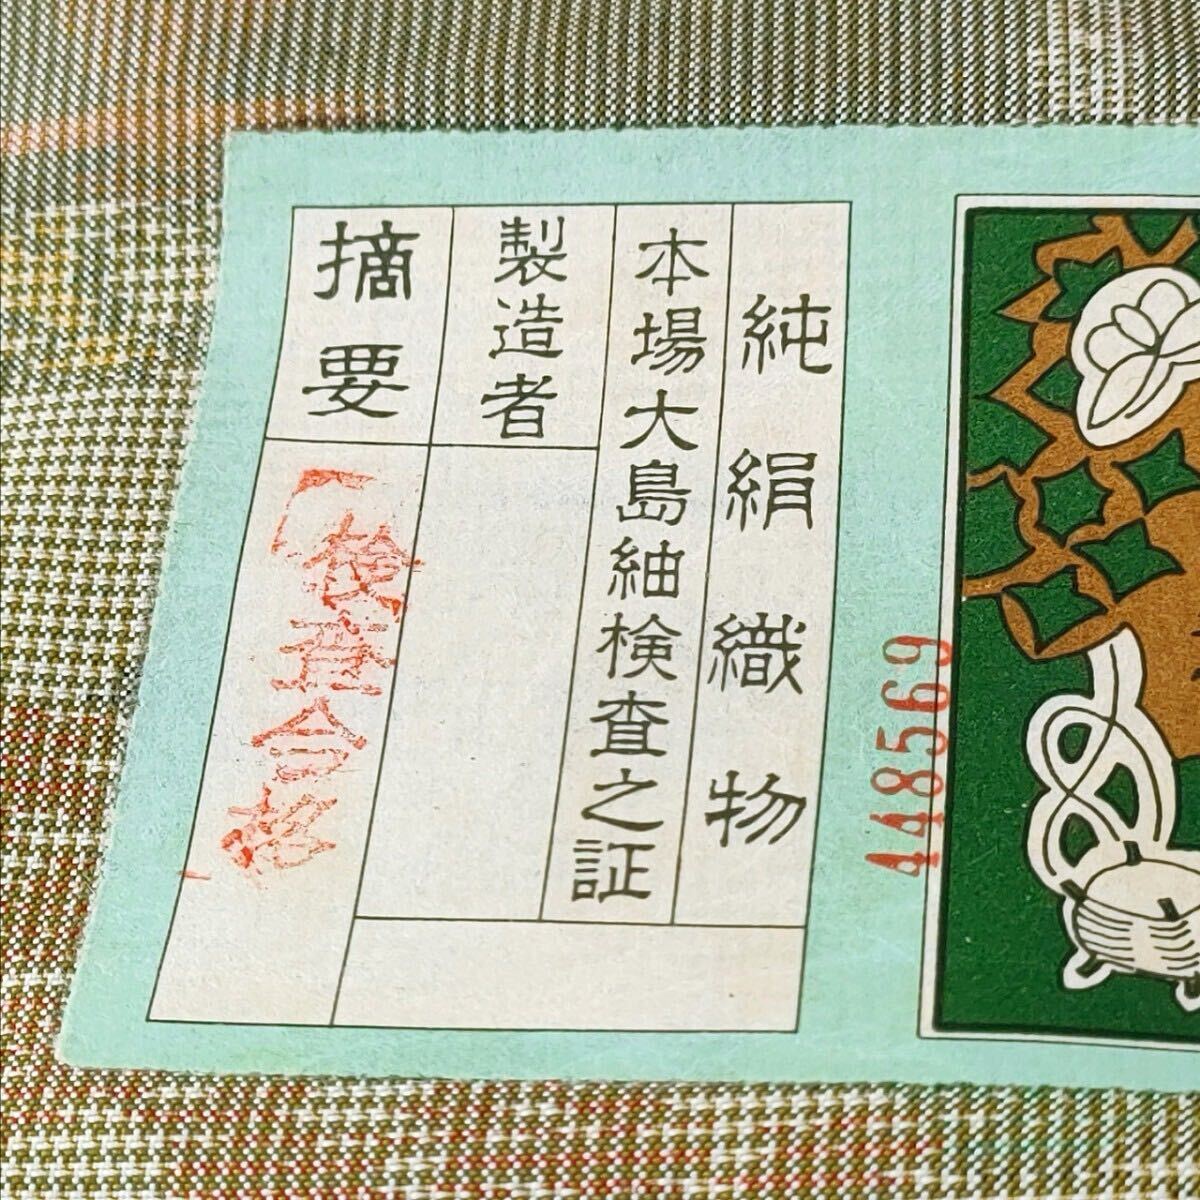 純絹織物
本場大島紬検査之証
製造者
摘要
検査合格
448569